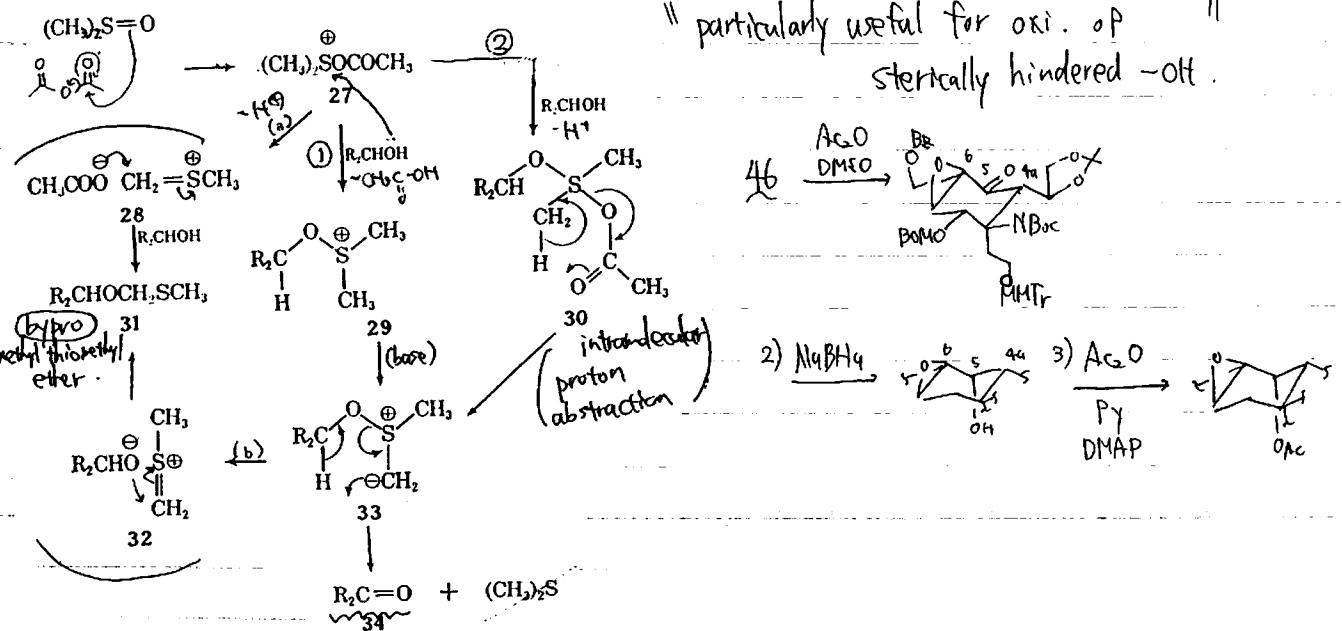 (CH₃)₂S=O
(CH₃)₂S⊕OCOCH₃
27
-H⊕
(a)
①
R₂CHOH
②
R₂CHOH
-H⁺
CH₃COO⊖ CH₂=S⊕CH₃
28
R₂CHOH
R₂CHOCH₂SCH₃
31
bypro
ether.
R₂C O S⊕ CH₃
H CH₃
29
(base)
O CH₃
R₂CH S
CH₂ O
H C
O CH₃
30
intramolecular
proton
abstraction
CH₃
R₂CHO⊖ S⊕
CH₂
32
(b)
R₂C O S⊕ CH₃
H ⊖CH₂
33
R₂C=O + (CH₃)₂S
34
" particularly useful for oxi. of "
sterically hindered -OH.
46
Ac₂O
DMSO
O 6 5 O 4a O O
BOMO
NBoc
O
MMTr
2) NaBH₄
O 6 5 4a
OH
3) Ac₂O
Py
DMAP
O
OAc